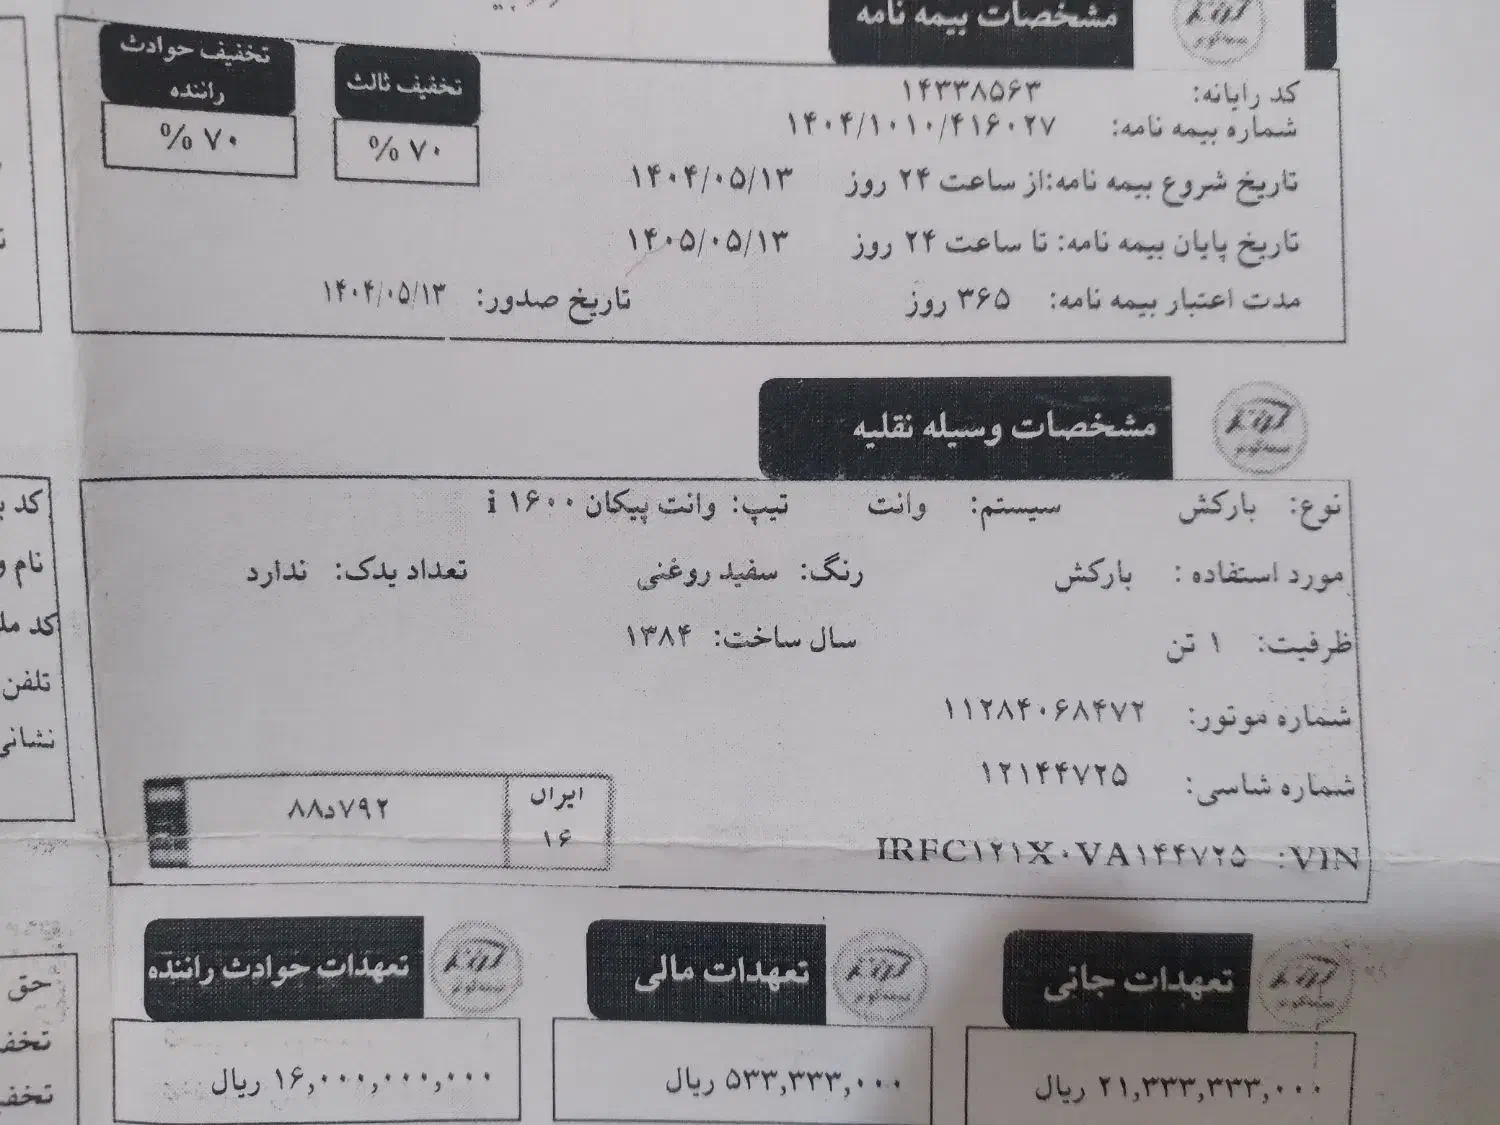 مشخصات بیمه نامه
تخفیف ثالث
۷۰ %
تخفیف حوادث
راننده
۷۰ %
کد رایانه: ۱۴۳۳۸۵۶۳
شماره بیمه نامه: ۱۴۰۴/۱۰۱۰/۴۱۶۰۲۷
تاریخ شروع بیمه نامه:از ساعت ۲۴ روز ۱۴۰۴/۰۵/۱۳
تاریخ پایان بیمه نامه: تا ساعت ۲۴ روز ۱۴۰۵/۰۵/۱۳
مدت اعتبار بیمه نامه: ۳۶۵ روز تاریخ صدور: ۱۴۰۴/۰۵/۱۳
مشخصات وسیله نقلیه
نوع: بارکش سیستم: وانت تیپ: وانت پیکان ۱۶۰۰ i
مورد استفاده : بارکش رنگ: سفید روغنی تعداد یدک: ندارد
ظرفیت: ۱ تن سال ساخت: ۱۳۸۴
شماره موتور: ۱۱۲۸۴۰۶۸۴۷۲
شماره شاسی: ۱۲۱۴۴۷۲۵
VIN: IRFC۱۲۱X۰VA۱۴۴۷۲۵
ایران
۱۶
۸۸د۷۹۲
تعهدات جانی
۲۱,۳۳۳,۳۳۳,۰۰۰ ریال
تعهدات مالی
۵۳۳,۳۳۳,۰۰۰ ریال
تعهدات حوادث راننده
۱۶,۰۰۰,۰۰۰,۰۰۰ ریال
کد
نام
کد
تلفن
نشانی
حق